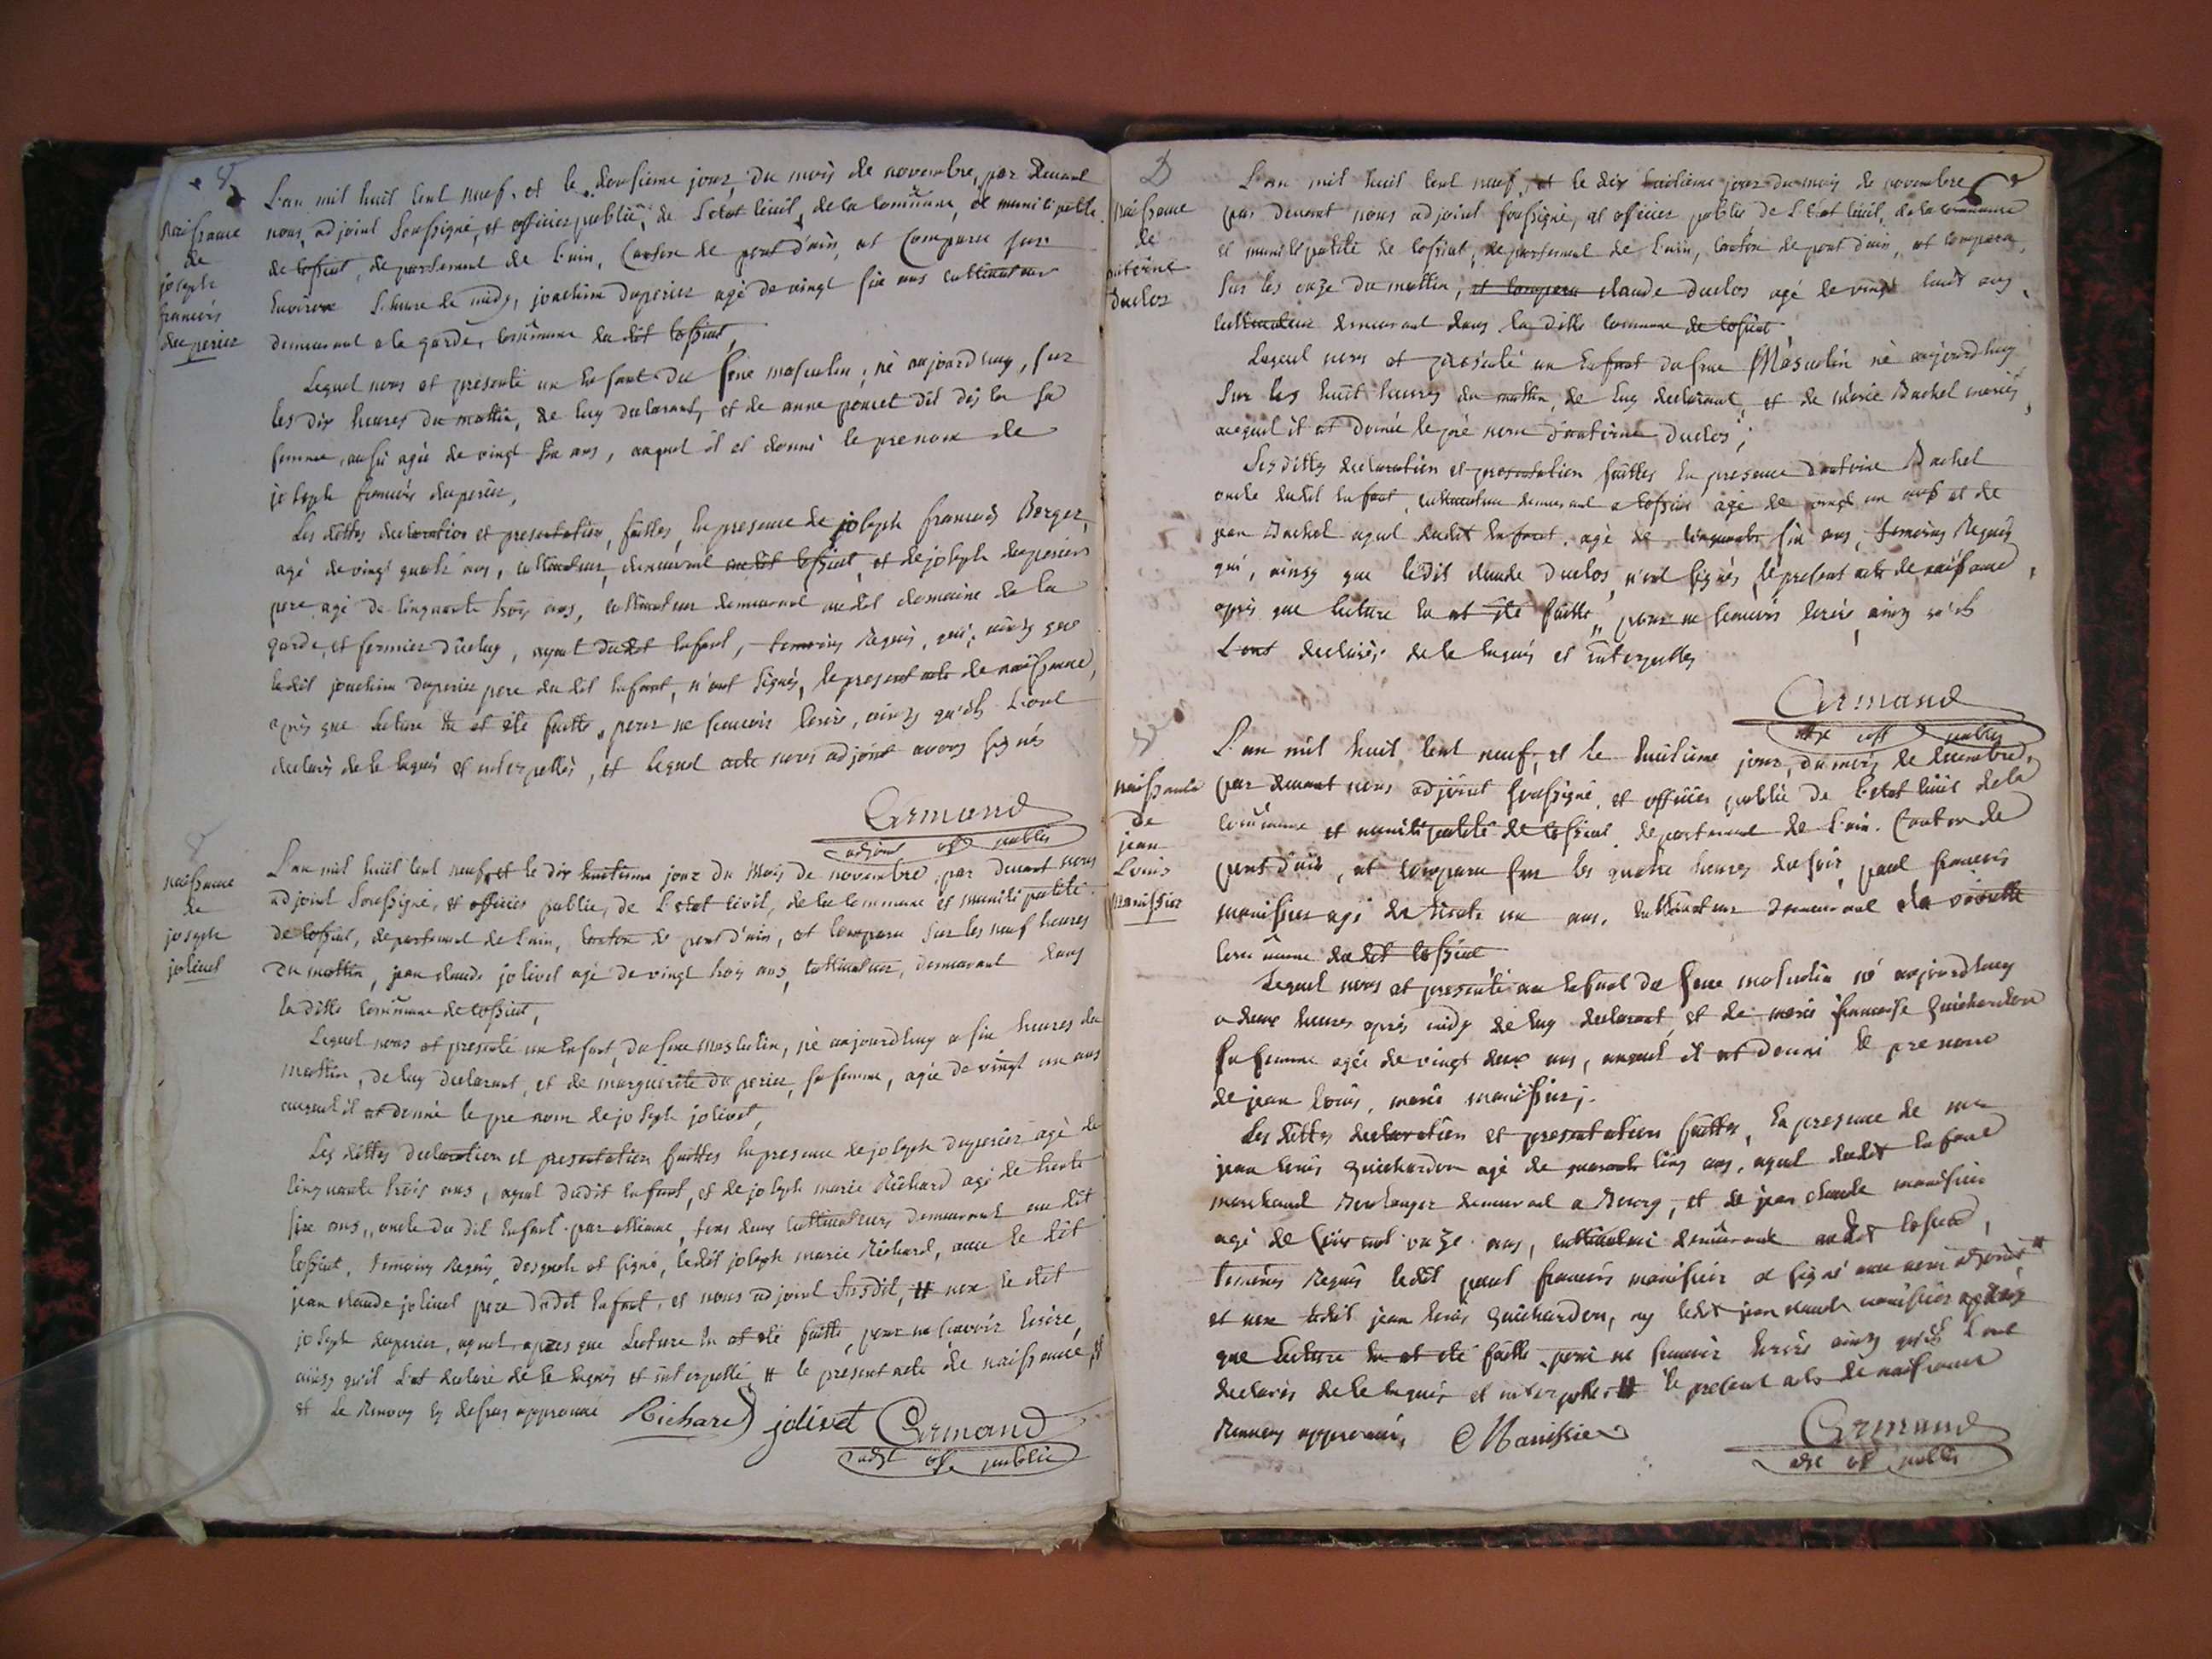 naissance
de
joseph
francois
duperier
L'an mil huit cent neuf, et le dousieme jour, du mois de novembre, par devant
nous, adjoint soussigné, et officier publié, de l'etat civil, de la commune, et municipalité
de cossiat, departement de l'ain, canton de pont d'ain, et comparu sur
environ l'heure de midy, joachim duperier agé de vingt six ans cultivateur
demeurant a la garde, commune du dit cossiat,
Lequel nous at presenté un enfant du sexe masculin, né aujourdhuy, sur
les dix heures du mattin, de luy declarant, et de anne poncet dit dés la sa
femme, aussi agée de vingt six ans, auquel il at donné le prenom de
joseph francois duperier,
Les dittes declaration et presentation, faittes, en presence de joseph francois Berger,
agé de vingt quatre ans, cultivateur, demeurant audit cossiat, et de joseph duperier
pere agé de cinquante trois ans, cultivateur demeurant audit domaine de la
garde, et fermier d'icluy, ayeul dudit enfant, temoins requis, qui, ainsy que
ledit joachim duperier pere du dit enfant, n'ont signés, le present acte de naissance,
après que lecture en at été faitte, pour ne scavoir ecrire, ainsy qu'ils l'ont
declarés de ce enquis et interpellés, et lequel acte nous adjoint avons signés
Armand
adjoint off public
naissance
de
joseph
jolivet
L'an mil huit cent neuf, et le dix huitieme jour du mois de novembre, par devant nous
adjoint soussigné, et officier public, de l'etat civil, de la commune et municipalité
de cossiat, departement de l'ain, canton de pont d'ain, at comparu sur les neuf heures
du mattin, jean claude jolivet agé de vingt trois ans, cultivateur, demeurant dans
la ditte commune de cossiat,
Lequel nous at presenté un enfant, du sexe masculin, né aujourdhuy a six heures du
mattin, de luy declarant, et de marguerite duperier, sa femme, agée de vingt un ans
auquel il at donné le pre nom de joseph jolivet,
Les dittes declaration et presentation faittes en presence de joseph duperier agé de
cinquante trois ans, ayeul dudit enfant, et de joseph marie Richard agé de trente
six ans, oncle du dit enfant par alliance, tous deux cultivateurs demeurant au dit
cossiat, temoins requis, desquels at signé, ledit joseph marie Richard, avec le dit
jean claude jolivet pere dudit enfant, et nous adjoint susdit, # non le dit
joseph duperier, ayeul, apres que lecture en at été faitte, pour ne scavoir ecrire,
ainsy qu'il l'at declaré de ce enquis et interpellé # le present acte de naissance, #
et le renvoy cy dessus approuvé Richard jolivet Armand
adjt off public
D
naissance
de
antoine
duclos
L'an mil huit cent neuf, et le dix huitieme jour du mois de novembre
par devant nous adjoint soussigné, et officier public de l'etat civil, de la commune
et municipalité de cossiat, departement de l'ain, canton de pont d'ain, at comparu,
sur les onze du mattin, et comparu claude duclos agé de vingt huit ans,
cultivateur demeurant dans la ditte commune de cossiat
Lequel nous at presenté un enfant du sexe Masculin né aujourdhuy
sur les huit heures du mattin, de luy declarant, et de marie Bachel mariés,
auquel il at donné le pré nom d'antoine duclos;
Les dittes declaration et presentation faittes en presence d'antoine Bachel
oncle dudit enfant, cultivateur demeurant a cossiat agé de vingt un ans et de
jean Bachel ayeul dudit enfant, agé de cinquante six ans, temoins requis
qui, ainsy que ledit claude duclos, n'ont signés, le present acte de naissance,
après que lecture en at été faitte, pour ne scavoir ecrire, ainsy qu'ils
l'ont declarés, de ce enquis et interpellés
Armand
adjt off public
naissance
de
jean
Louis
manissier
L'an mil huit cent neuf, et le huitieme jour, du mois de decembre,
par devant nous adjoint soussigné, et officier publié de l'etat civil de la
commune et municipalité de cossiat, departement de l'ain, canton de
pont d'ain, at comparu sur les quatre heures du soir, paul francois
manissier agé de trente un ans, cultivateur demeurant a la
commune du dit cossiat
Lequel nous at presenté un enfant du sexe masculin né aujourdhuy
a deux heures après midy de luy declarant, et de marie francoise guichardon
sa femme agée de vingt deux ans, auquel il at donné le prenom
de jean louis, marie manissier;
Les dittes declaration et presentation faittes, en presence de
jean louis guichardon agé de quarante cinq ans, ayeul dudit enfant
marchand Boulanger demeurant a Bourg, et de jean claude manissier
agé de soixante onze ans, cultivateur demeurant audit cossiat,
temoins requis ledit paul francois manissier at signé avec nous adjoint #
et non ledit jean louis guichardon, ny ledit jean claude manissier après
que lecture en at été faitte, pour ne scavoir ecrire ainsy qu'ils l'ont
declarés de ce enquis et interpellés # le present acte de naissance
Renvoy approuvé, Manissier
Armand
adjt off public